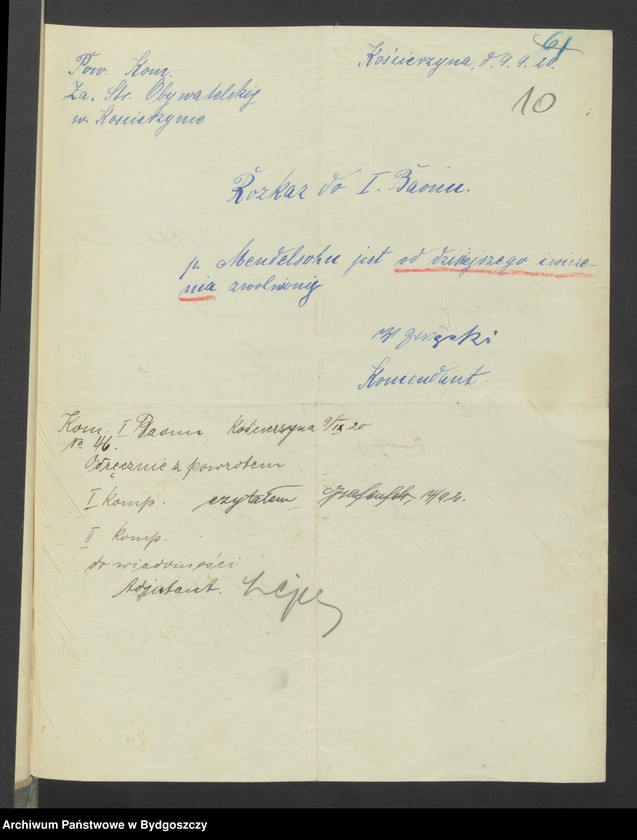 61
Kościerzyna, d. 9. 9. 20.
10
Pow. Kom.
Za. Str. Obywatelskiej
w Kościerzynie
Rozkaz do I. Baonu.
p. Mendelsohn jest od dzisiejszego imie-
nia zwolniony
Komendant
Kom. I Baonu Kościerzyna 9/IX 20
No 46.
Odręcznie z powrotem
I Komp. czytałem
II Komp.
do wiadomości
Adjutant.
Archiwum Państwowe w Bydgoszczy